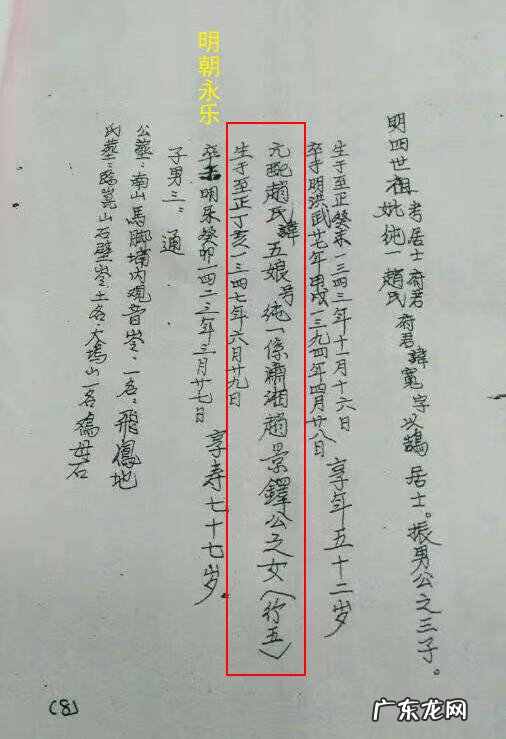 明朝永乐
明四世祖考居士府君府君諱寬字以鵠居士。振男公之三子。
妣純一趙氏
生于至正癸未一三四三年十一月十六日
卒于明洪武廿七年甲戌一三九四年四月廿八日
享年五十二岁
元配趙氏諱五娘号純一係瀟湘趙景鐸公之女(行五)
生于至正丁亥一三四七年六月廿九日
卒明癸卯一四二三年三月廿七日
享寿七十七岁
子男三:通
公葬:南山馬脚埔内观音岑:一名:飛鳳地
氏葬:臨崑山石壁岑土名:大塢山一名鴻母石
(8)
广东龙网